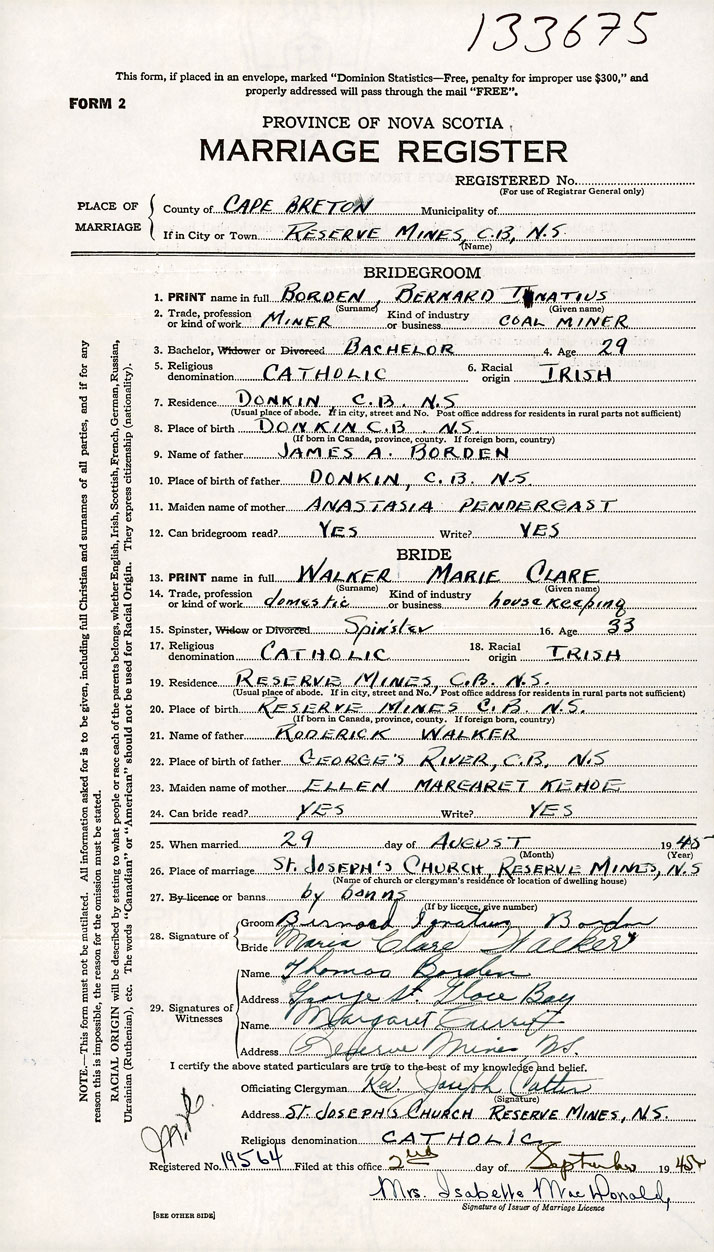 133675
This form, if placed in an envelope, marked "Dominion Statistics—Free, penalty for improper use $300," and
properly addressed will pass through the mail "FREE".
FORM 2
PROVINCE OF NOVA SCOTIA
MARRIAGE REGISTER
REGISTERED No.
(For use of Registrar General only)
PLACE OF MARRIAGE
County of CAPE BRETON Municipality of
If in City or Town RESERVE MINES, C.B, N.S.
(Name)
BRIDEGROOM
1. PRINT name in full BORDEN, BERNARD IGNATIUS
(Surname) (Given name)
2. Trade, profession or kind of work MINER Kind of industry or business COAL MINER
3. Bachelor, Widower or Divorced BACHELOR 4. Age 29
5. Religious denomination CATHOLIC 6. Racial origin IRISH
7. Residence DONKIN, C.B. N.S
(Usual place of abode. If in city, street and No. Post office address for residents in rural parts not sufficient)
8. Place of birth DONKIN C.B. N.S.
(If born in Canada, province, county. If foreign born, country)
9. Name of father JAMES A. BORDEN
10. Place of birth of father DONKIN, C.B. N.S.
11. Maiden name of mother ANASTASIA PENDERGAST
12. Can bridegroom read? YES Write? YES
BRIDE
13. PRINT name in full WALKER MARIE CLARE
(Surname) (Given name)
14. Trade, profession or kind of work domestic Kind of industry or business housekeeping
15. Spinster, Widow or Divorced Spinster 16. Age 33
17. Religious denomination CATHOLIC 18. Racial origin IRISH
19. Residence RESERVE MINES, C.B. N.S.
(Usual place of abode. If in city, street and No. Post office address for residents in rural parts not sufficient)
20. Place of birth RESERVE MINES C.B. N.S.
(If born in Canada, province, county. If foreign born, country)
21. Name of father RODERICK WALKER
22. Place of birth of father GEORGE'S RIVER, C.B, N.S
23. Maiden name of mother ELLEN MARGARET KEHOE
24. Can bride read? YES Write? YES
25. When married 29 day of AUGUST 1945
(Month) (Year)
26. Place of marriage ST. JOSEPH'S CHURCH, RESERVE MINES, N.S
(Name of church or clergyman's residence or location of dwelling house)
27. By licence or banns by banns
(If by licence, give number)
28. Signature of
Groom Bernard Ignatius Borden
Bride Marie Clare Walker
29. Signatures of Witnesses
Name Thomas Borden
Address George St Glace Bay
Name Margaret
Address Reserve Mines NS.
I certify the above stated particulars are true to the best of my knowledge and belief.
Officiating Clergyman Rev. Joseph
(Signature)
Address ST. JOSEPH'S CHURCH RESERVE MINES, N.S.
Religious denomination CATHOLIC
Registered No. 19564 Filed at this office 2nd day of September 1945
Mrs. Isabette MacDonald
Signature of Issuer of Marriage Licence
[SEE OTHER SIDE]
NOTE.—This form must not be mutilated. All information asked for is to be given, including full Christian and surnames of all parties, and if for any
reason this is impossible, the reason for the omission must be stated.
RACIAL ORIGIN will be described by stating to what people or race each of the parents belongs, whether English, Irish, Scottish, French, German, Russian,
Ukrainian (Ruthenian), etc. The words "Canadian" or "American" should not be used for Racial Origin. They express citizenship (nationality).